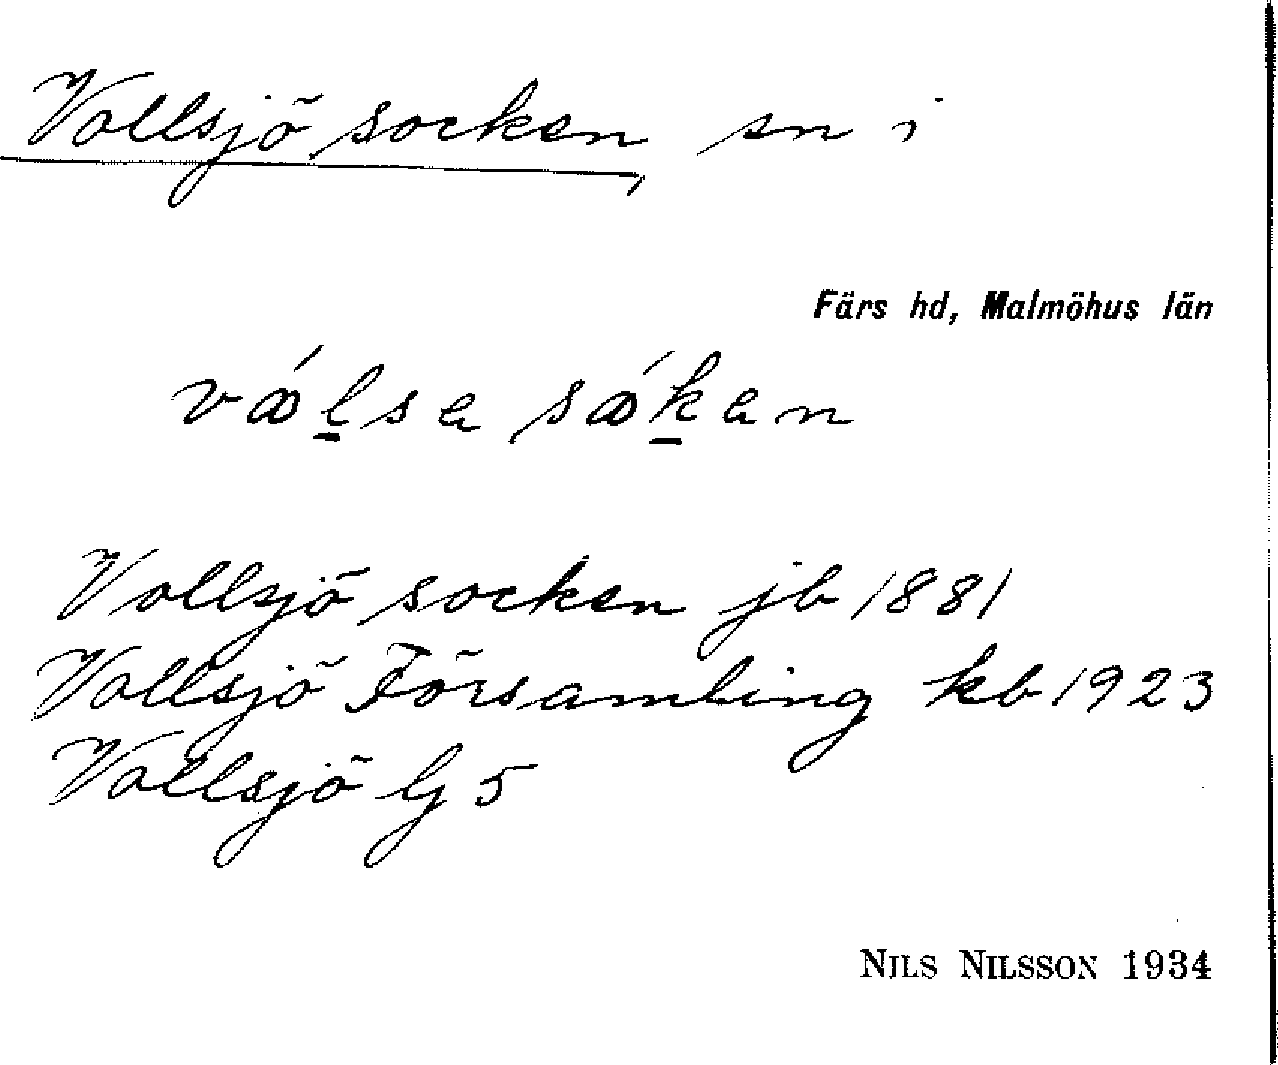 Vollsjö socken, sn i
Färs hd, Malmöhus län
vǿl̠sa sǿk̠an
Vollsjö socken jb 1881
Vollsjö Församling kb 1923
Vollsjö G 5
NILS NILSSON 1934